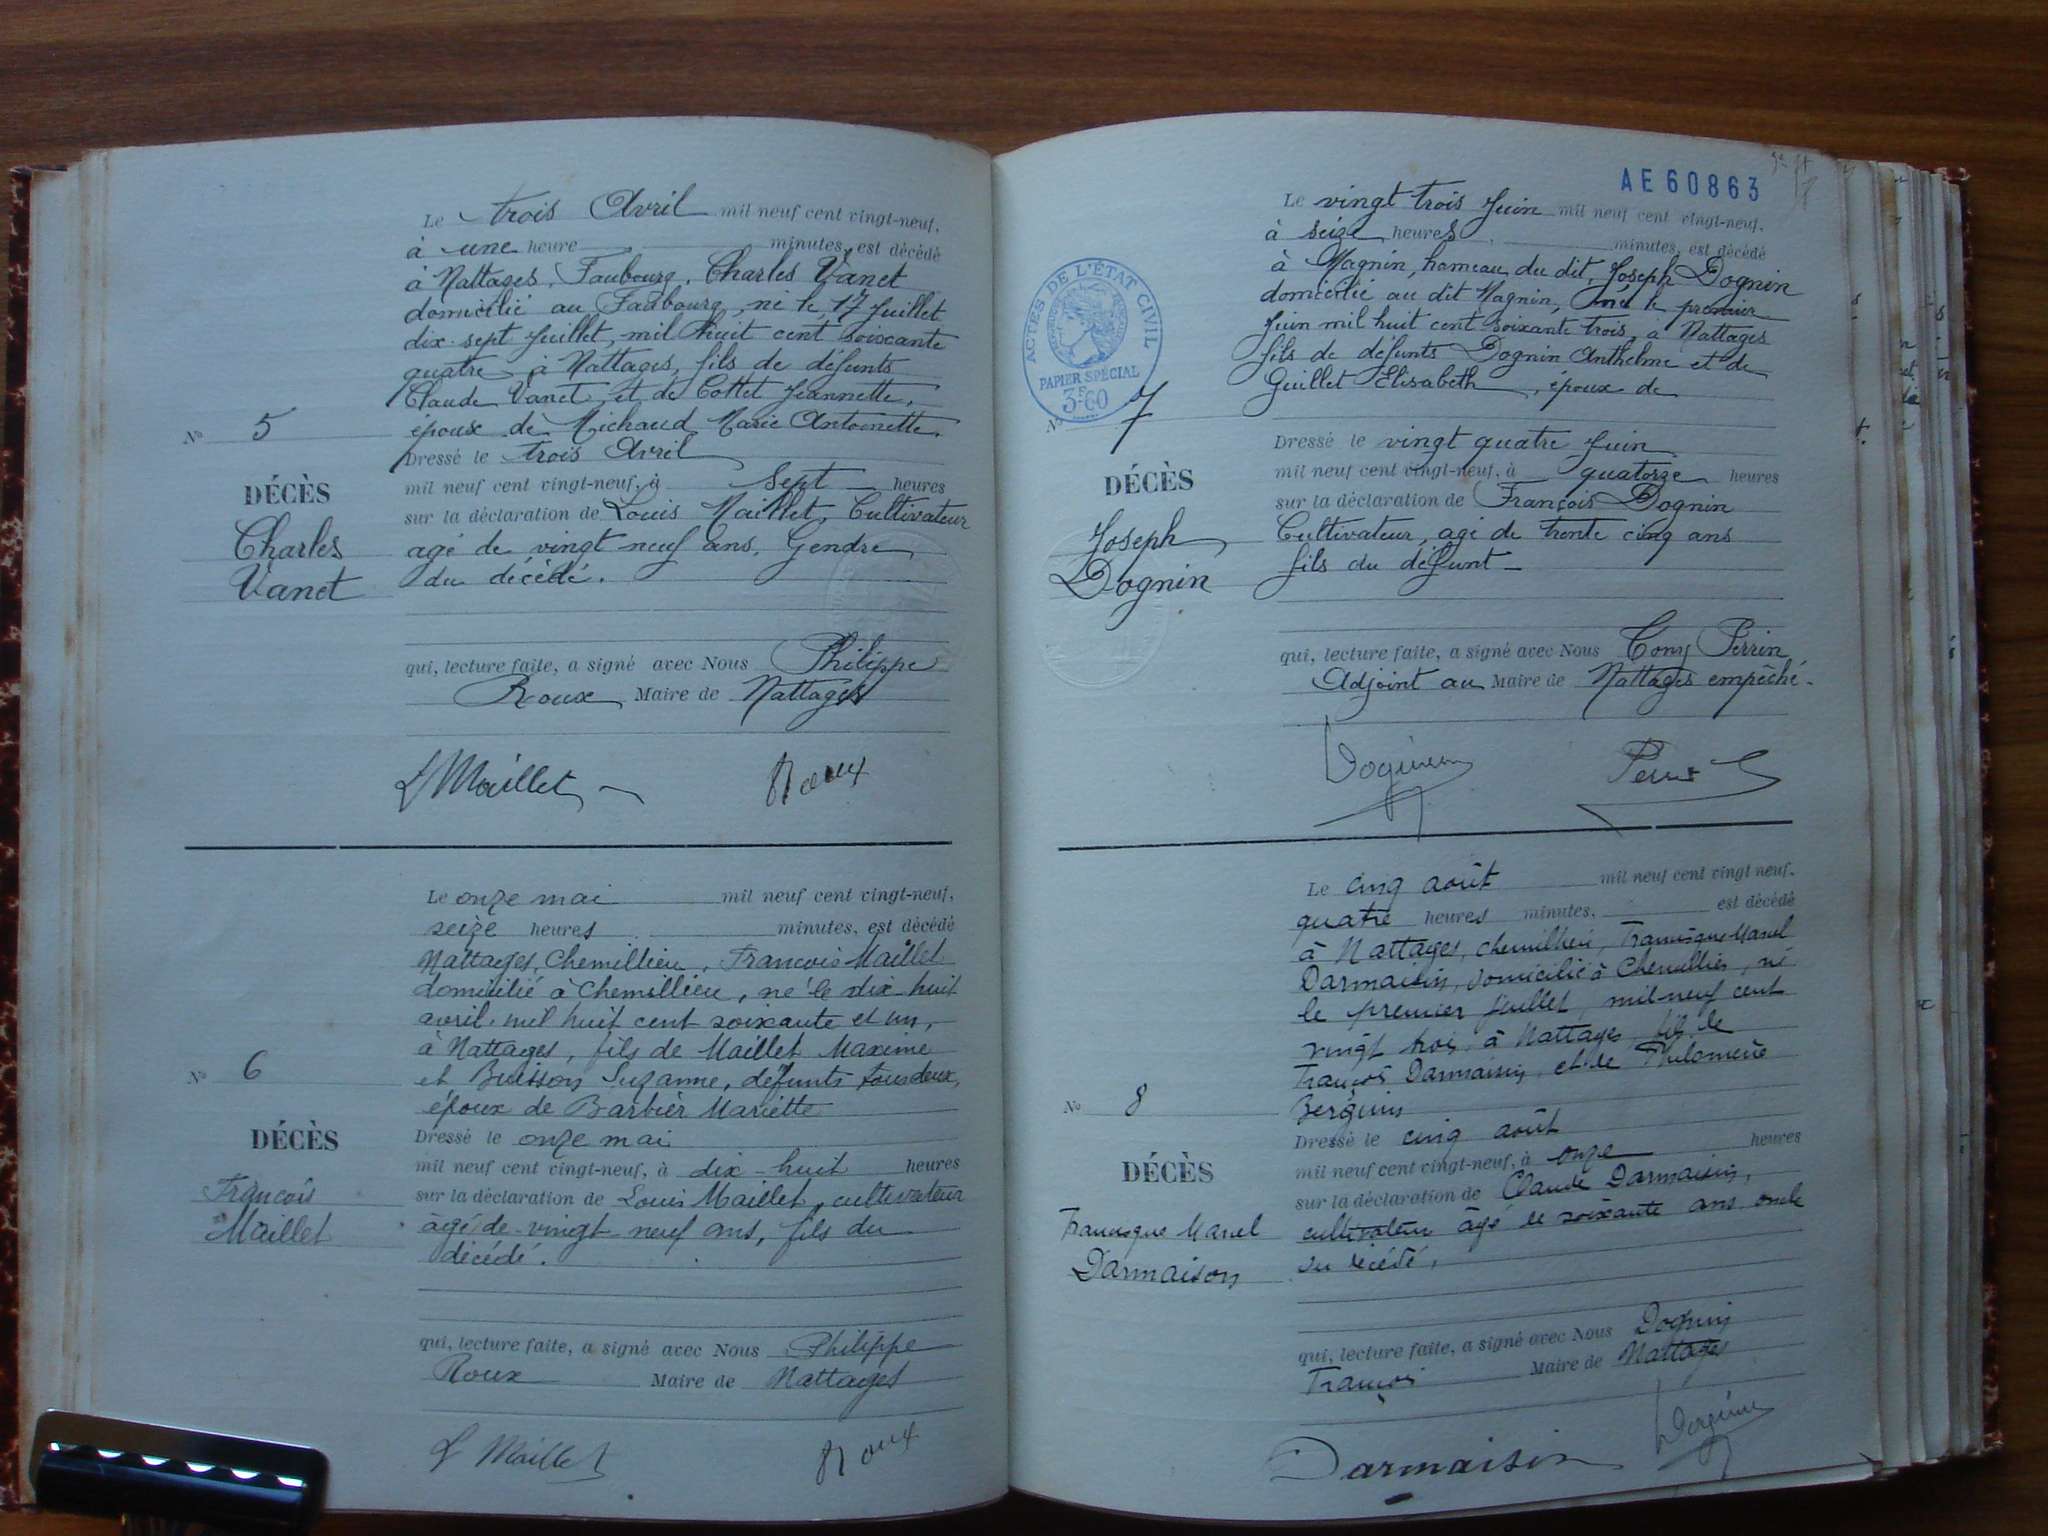 Le trois Avril mil neuf cent vingt-neuf,
à une heure minutes, est décédé
à Nattages, Faubourg, Charles Vanet
domicilié au Faubourg, né le 17 Juillet
dix-sept Juillet, mil huit cent soixante
quatre à Nattages, fils de défunts
Claude Vanet et de Cottet Jeannette,
époux de Michaud Marie Antoinette.
Nº 5
DÉCÈS
Charles
Vanet
Dressé le trois Avril
mil neuf cent vingt-neuf, à sept heures
sur la déclaration de Louis Maillet, Cultivateur
agé de vingt neuf ans, Gendre
du décédé.
qui, lecture faite, a signé avec Nous Philippe
Roux Maire de Nattages
L Maillet Roux
Le onze mai mil neuf cent vingt-neuf,
seize heures minutes, est décédé
Nattages, Chemillieu, Francois Maillet
domicilié à Chemillieu, né le dix-huit
avril mil huit cent soixante et un,
à Nattages, fils de Maillet Maxime
et Buisson Suzanne, défunts tous deux,
époux de Barbier Mariette
Nº 6
DÉCÈS
François
Maillet
Dressé le onze mai
mil neuf cent vingt-neuf, à dix-huit heures
sur la déclaration de Louis Maillet, cultivateur
âgé de vingt neuf ans, fils du
décédé.
qui, lecture faite, a signé avec Nous Philippe
Roux Maire de Nattages
L Maillet Roux
AE60863
ACTES DE L'ÉTAT CIVIL
PAPIER SPÉCIAL
3F60
Le vingt trois Juin mil neuf cent vingt-neuf,
à seize heures minutes, est décédé
à Magnin, hameau du dit, Joseph Dognin
domicilié au dit Magnin, né le premier
Juin mil huit cent soixante trois, à Nattages
fils de défunts Dognin Anthelme et de
Guillet Elisabeth, époux de
Nº 7
DÉCÈS
Joseph
Dognin
Dressé le vingt quatre Juin
mil neuf cent vingt-neuf, à quatorze heures
sur la déclaration de François Dognin
Cultivateur, agé de trente cinq ans
fils du défunt
qui, lecture faite, a signé avec Nous Tony Perrin
Adjoint au Maire de Nattages empêché.
Dognin Perrin
Le cinq août mil neuf cent vingt neuf.
quatre heures minutes, est décédé
à Nattages, Chemillieu, Francisque Marcel
Darmaisin, domicilié à Chemillieu, né
le premier Juillet, mil-neuf cent
vingt trois à Nattages fils de
François Darmaisin, et de Philomène
Berguin
Nº 8
DÉCÈS
Francisque Marcel
Darmaison
Dressé le cinq août
mil neuf cent vingt-neuf, à onze heures
sur la déclaration de Claude Darmaisin,
cultivateur âgé de soixante ans oncle
du décédé,
qui, lecture faite, a signé avec Nous Dognin
François Maire de Nattages
Darmaisin Dognin